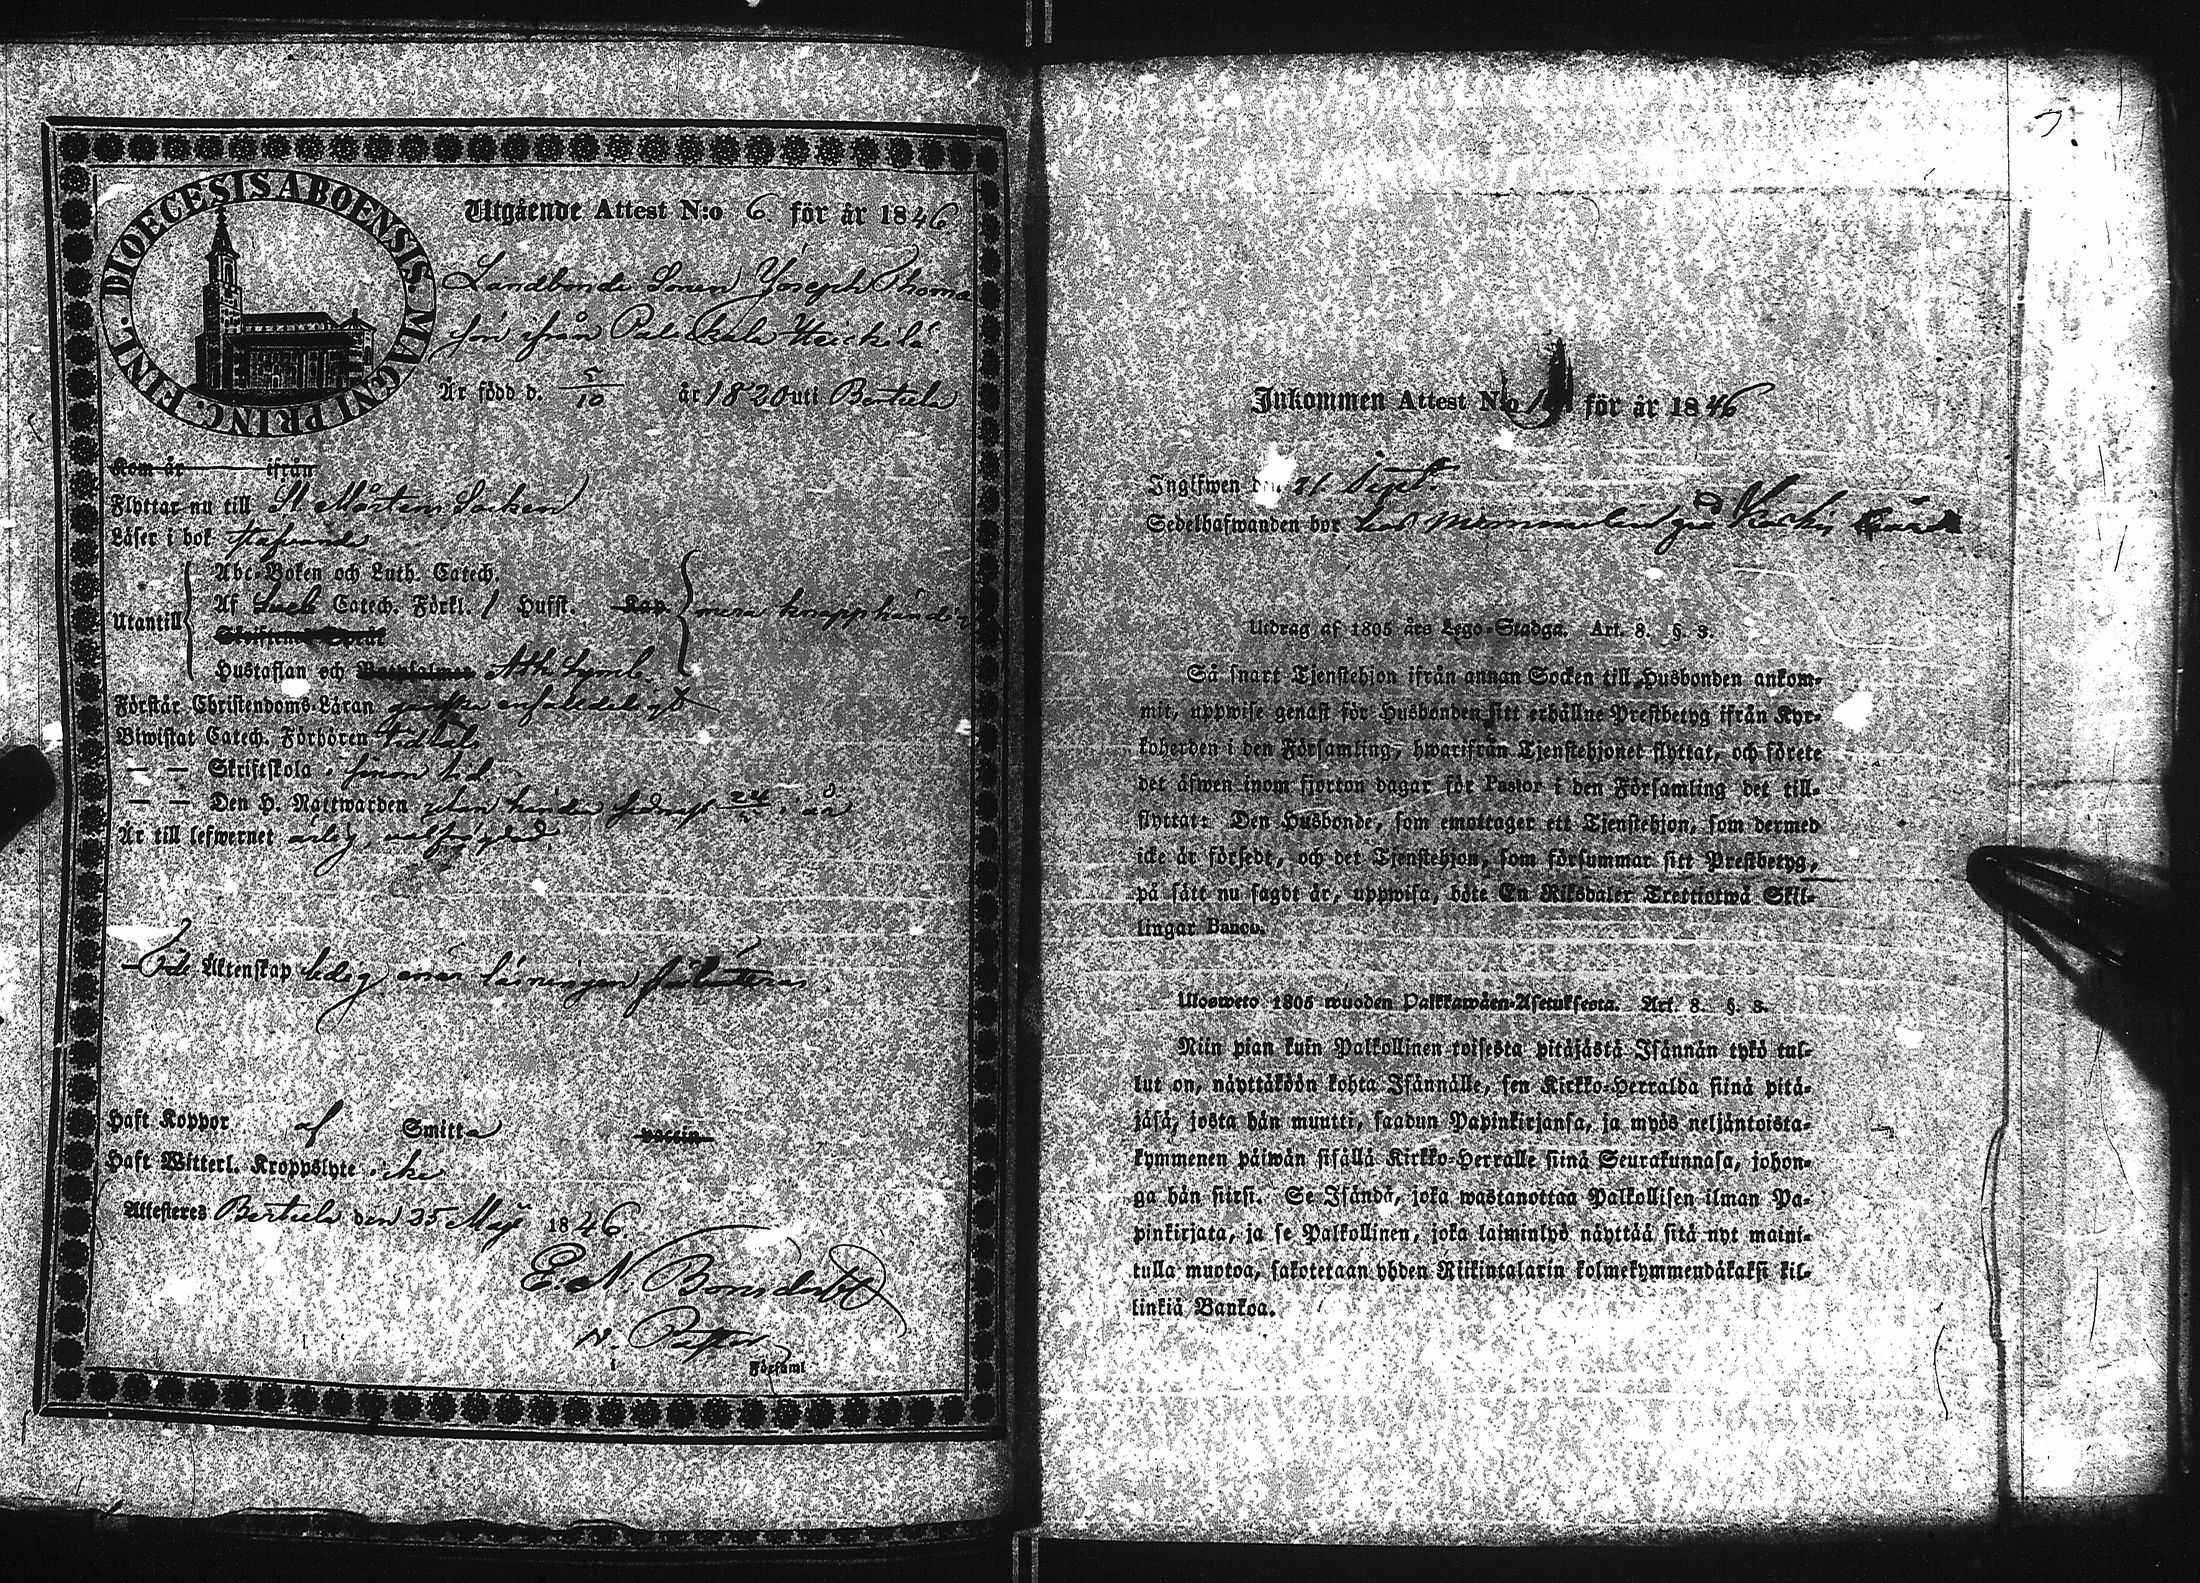 DIOECESIS ABOENSIS. MAGNI PRINC. FINL.
Utgående Attest N:o 6. för år 1846
Landbonde Sonen Joseph Thoma
son ifrån Heickilä.
Är född d. 5/10 år 1820 uti Bertula
Kom år ifrån
Flyttar nu till St Mårtens Socken
Läser i bok stafvande
Utantill
Abc-Boken och Luth. Catech.
Af Catech. Förkl. / Husst. Kap.
knapphändigt
Skriftenes Språk
Hustaflan och Botpsalmer Ath. Symb.
Förstår Christendoms-Läran ganska enfalldeligt
Biwistat Catech. Förhören
— — Skriftskola i sinom tid
— — Den H. Nattwarden utan hinder sednast 24/5 i år
Är till lefwernet ärlig, välfrejdad.
Till Äktenskap ledig, när läsningen förbättras.
Haft Koppor af Smitta vaccin
Haft Witterl. Kroppslyte icke
Attesteres Bertula den 25 Maji 1846.
E. N. Bonsdorff
v. Pastor
i Församl
Inkommen Attest N:o 1 för år 1846
Ingifwen den 21. Sept.
Sedelhafwanden bor hos på
Utdrag af 1805 års Lego-Stadga. Art. 8. §. 3.
Så snart Tjenstehjon ifrån annan Socken till Husbonden ankom-
mit, uppwise genast för Husbonden sitt erhållne Prestbetyg ifrån Kyr-
koherden i den Församling, hwarifrån Tjenstehjonet flyttat, och förete
det äfwen inom fjorton dagar för Pastor i den Församling det till-
flyttat: Den Husbonde, som emottager ett Tjenstehjon, som dermed
icke är försedt, och det Tjenstehjon, som försummar sitt Prestbetyg,
på sätt nu sagdt är, uppwisa, böte En Riksdaler Trettiotwå Skil-
lingar Banco.
Ulosweto 1805 wuoden Palkkawäen-Asetuksesta. Art. 8. §. 3.
Niin pian kuin Palkollinen toisesta pitäjästä Isännän tykö tul-
lut on, näyttäköön kohta Isännälle, sen Kirkko-Herralda siinä pitä-
jäsä, josta hän muutti, saadun Papinkirjansa, ja myös neljäntoista-
kymmenen päiwän sisällä Kirkko-Herralle siinä Seurakunnasa, johon-
ga hän siirsi. Se Isändä, joka wastanottaa Palkollisen ilman Pa-
pinkirjata, ja se Palkollinen, joka laiminlyö näyttää sitä nyt maini-
tulla muotoa, sakotetaan yhden Riikintalarin kolmekymmendäkaksi kil-
linkiä Bankoa.